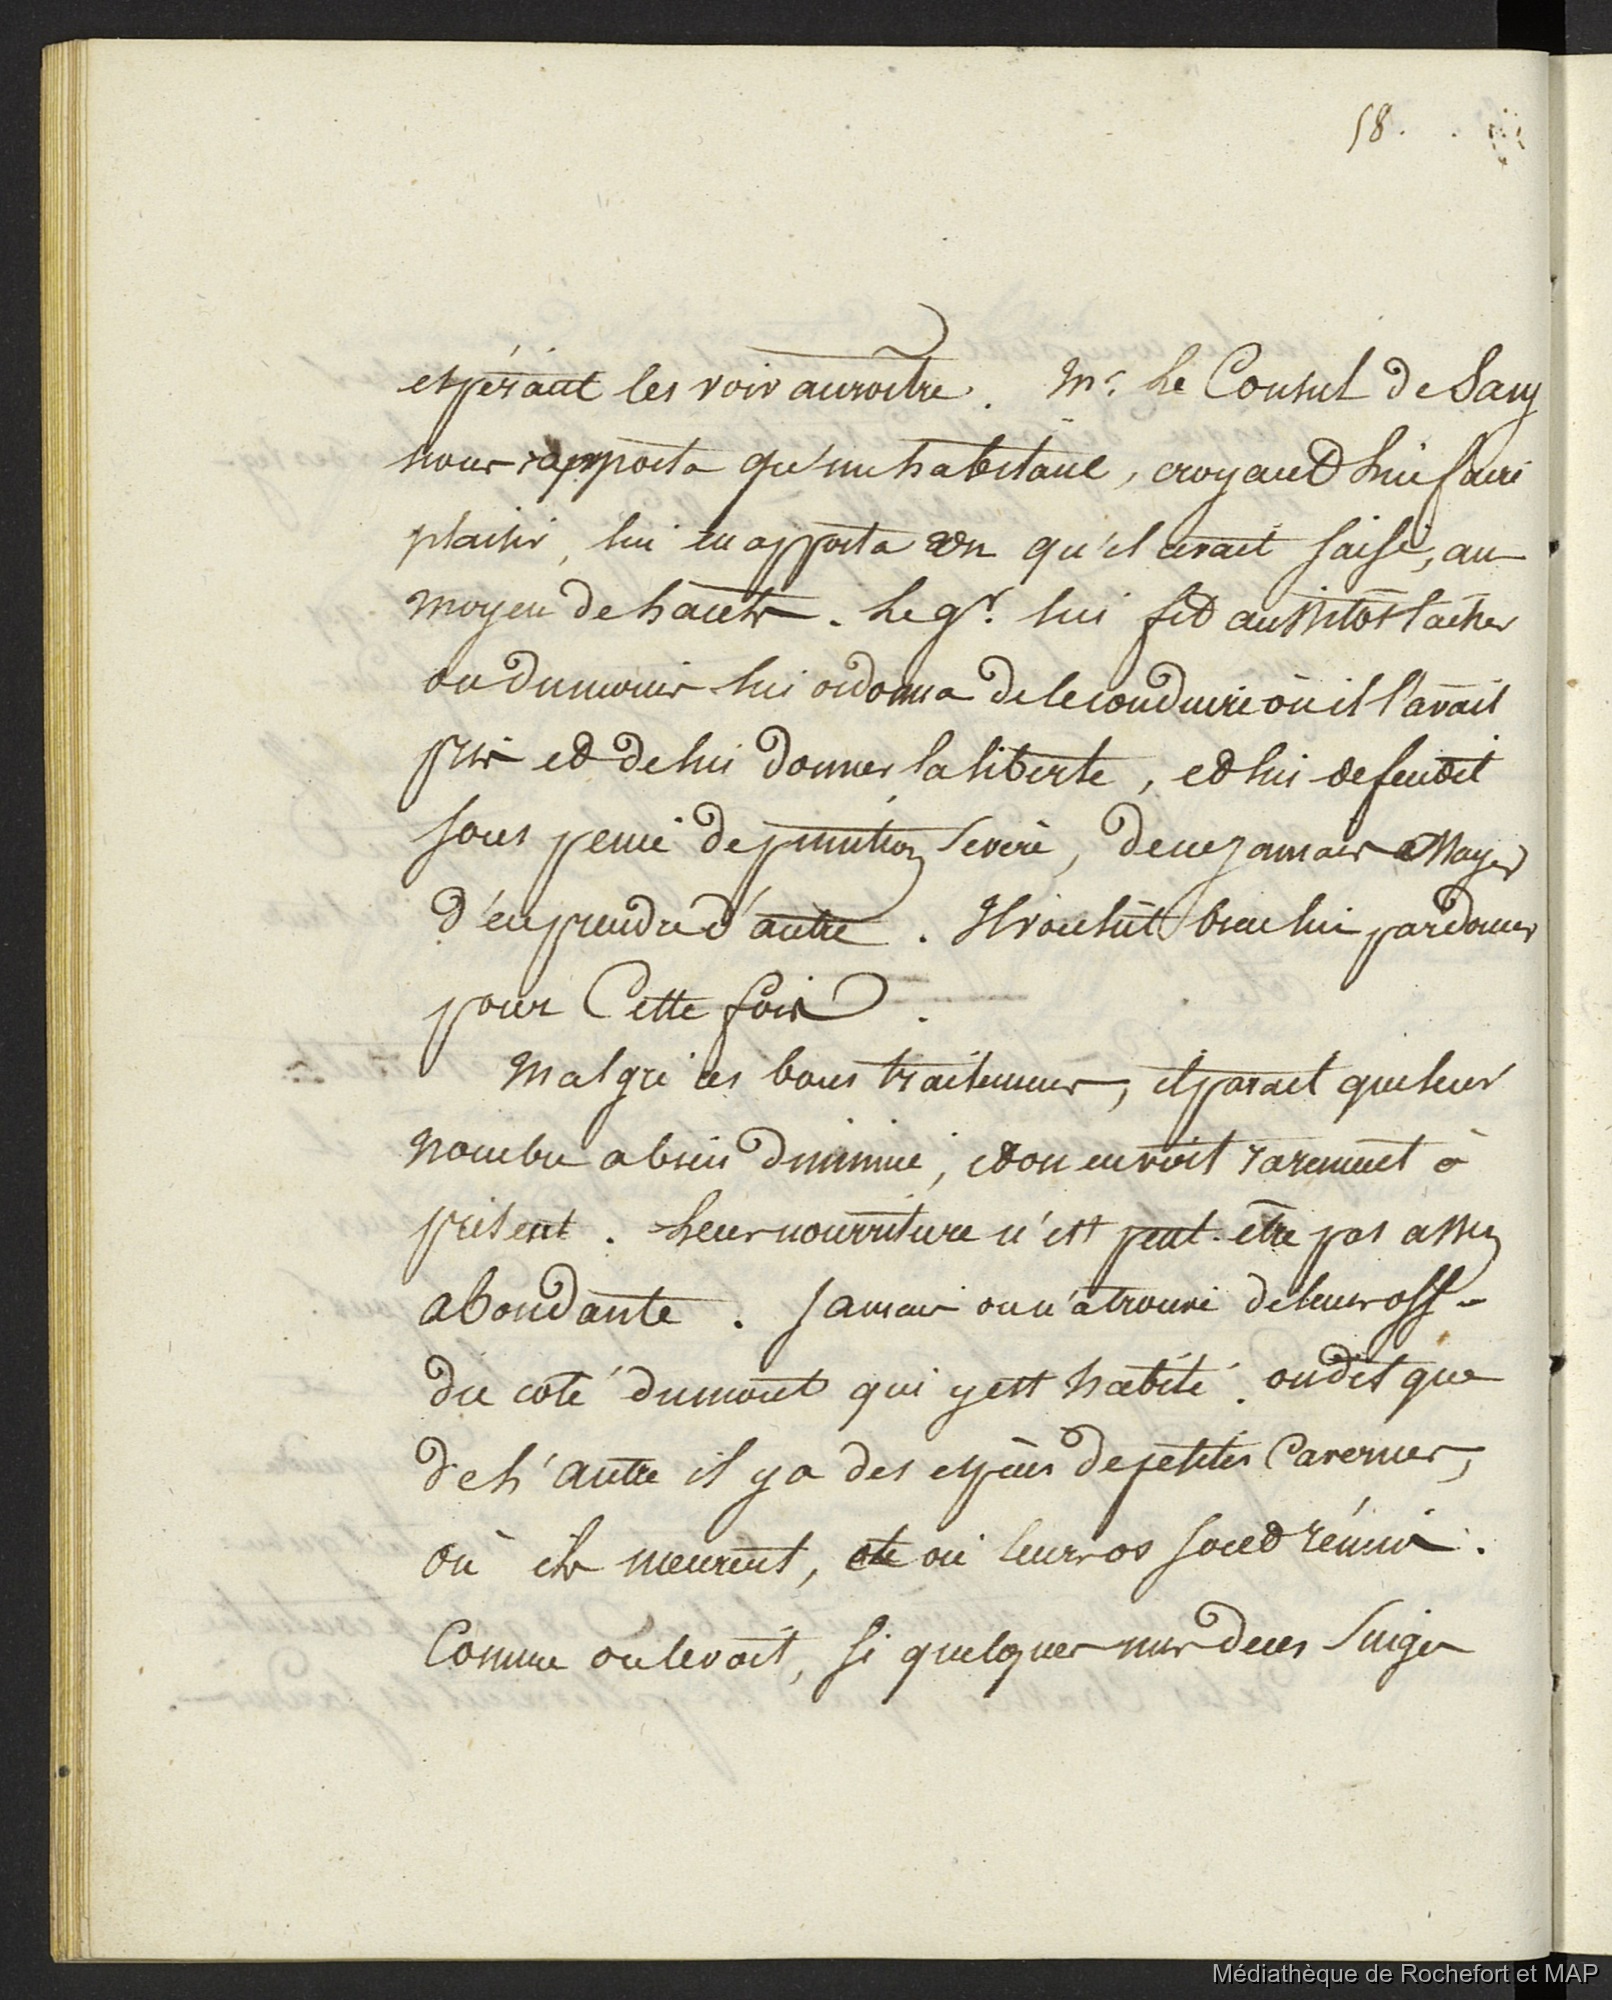 58.
espérant les voir auroître. Mr. le Consul de Sary
nous rapporta qu'un habitant, croyant lui faire
plaisir, lui en apporta un qu'il avait saisi, au
moyen de . Le gr. lui fit aussitôt lacher
ou du moins lui ordonna de le conduire où il l'avait
pris et de lui donner la liberte, et lui defendit
sous peine de punition severe, de ne jamais essayer
d'en prendre d'autre. Il voulût bien lui pardonner
pour Cette fois.
Malgré ces bons traitemens, il parait que leur
nombre a bien diminué, et on en voit rarement à
présent. Leur nourriture n'est peut-être pas assez
abondante. Jamais on n'a trouvé de leurs oss-
du coté du mont qui y est habité. on dit que
de l'autre il y a des espèces de petites Cavernes,
où ils meurent, et où leurs os sont réunis.
Comme on le voit, si quelques uns de ces Singes
Médiathèque de Rochefort et MAP